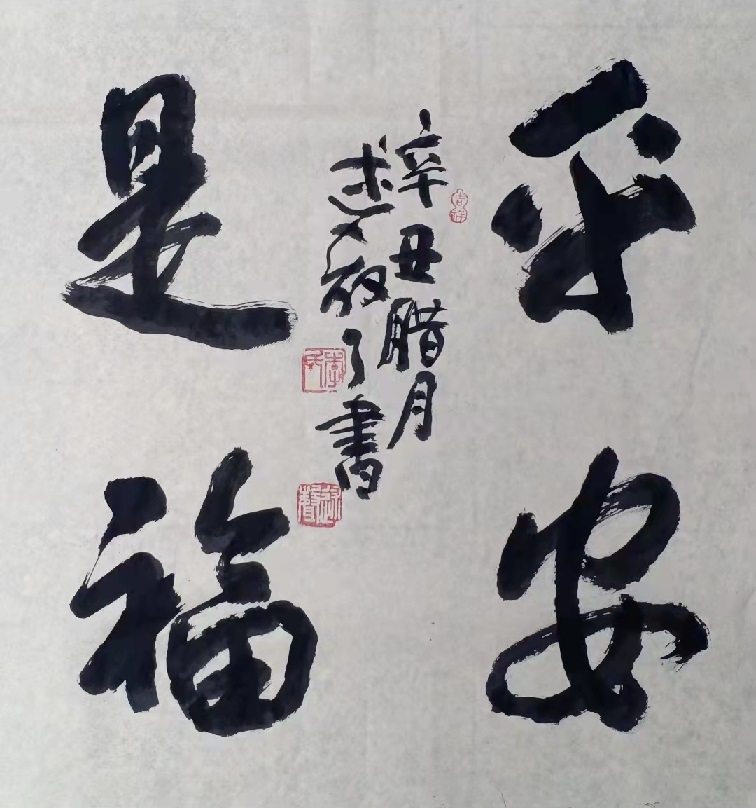 平安
是福
辛丑腊月
述放了書